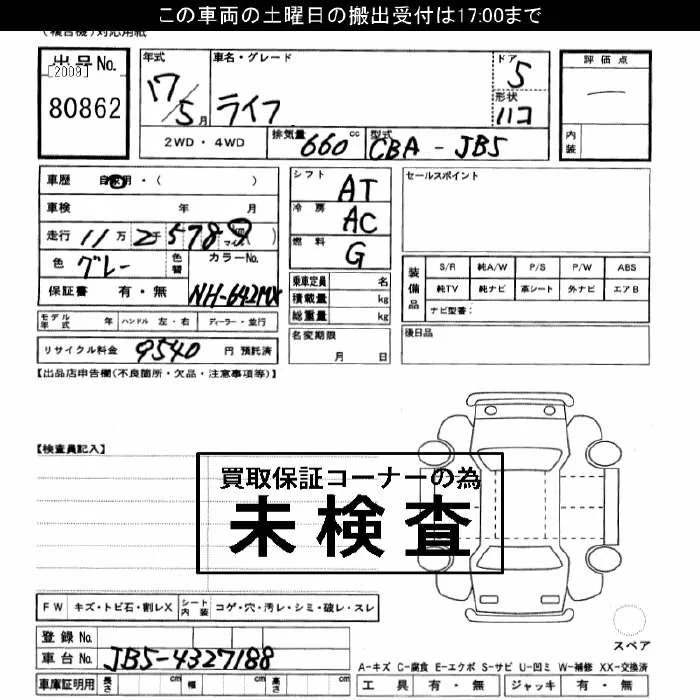 この車両の土曜日の搬出受付は17:00まで
(複合機)対応用紙
出品No.
[2009]
80862
年式
17/5月
車名・グレード
ライフ
ドア
5
形状
ハコ
評価点
内装
2WD・4WD
排気量 660 cc
型式 CBA-JB5
車歴 自家用・( )
車検 年 月
走行 11万2千578 km マイル( )
色 グレー
色替
カラーNo.
NH-642MX
保証書 有・無
シフト AT
冷房 AC
燃料 G
乗車定員 名
積載量 kg
総重量 kg
名変期限
月 日
セールスポイント
装備品
S/R 純A/W P/S P/W ABS
純TV 純ナビ 革シート 外ナビ エアB
ナビ型番:
後日品
モデル年式 年 ハンドル 左・右 ディーラー・並行
リサイクル料金 9540 円 預託済
【出品店申告欄(不良箇所・欠品・注意事項等)】
【検査員記入】
買取保証コーナーの為
未検査
FW キズ・トビ石・割レX シート内装 コゲ・穴・汚レ・シミ・破レ・スレ
スペア
登録No.
車台No. JB5-4327188
A-キズ C-腐食 E-エクボ S-サビ U-凹ミ W-補修 XX-交換済
車庫証明用 長さ cm 幅 cm 高さ cm
工具 有・無 ジャッキ 有・無